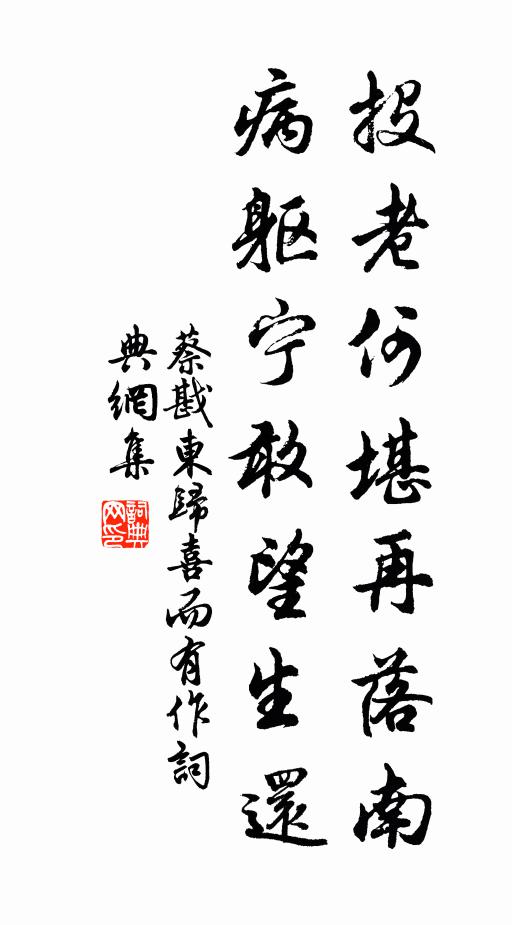 投老何堪再落南
病躯宁敢望生還
蔡戡東歸喜而有作詞
典網集
詞典
网印